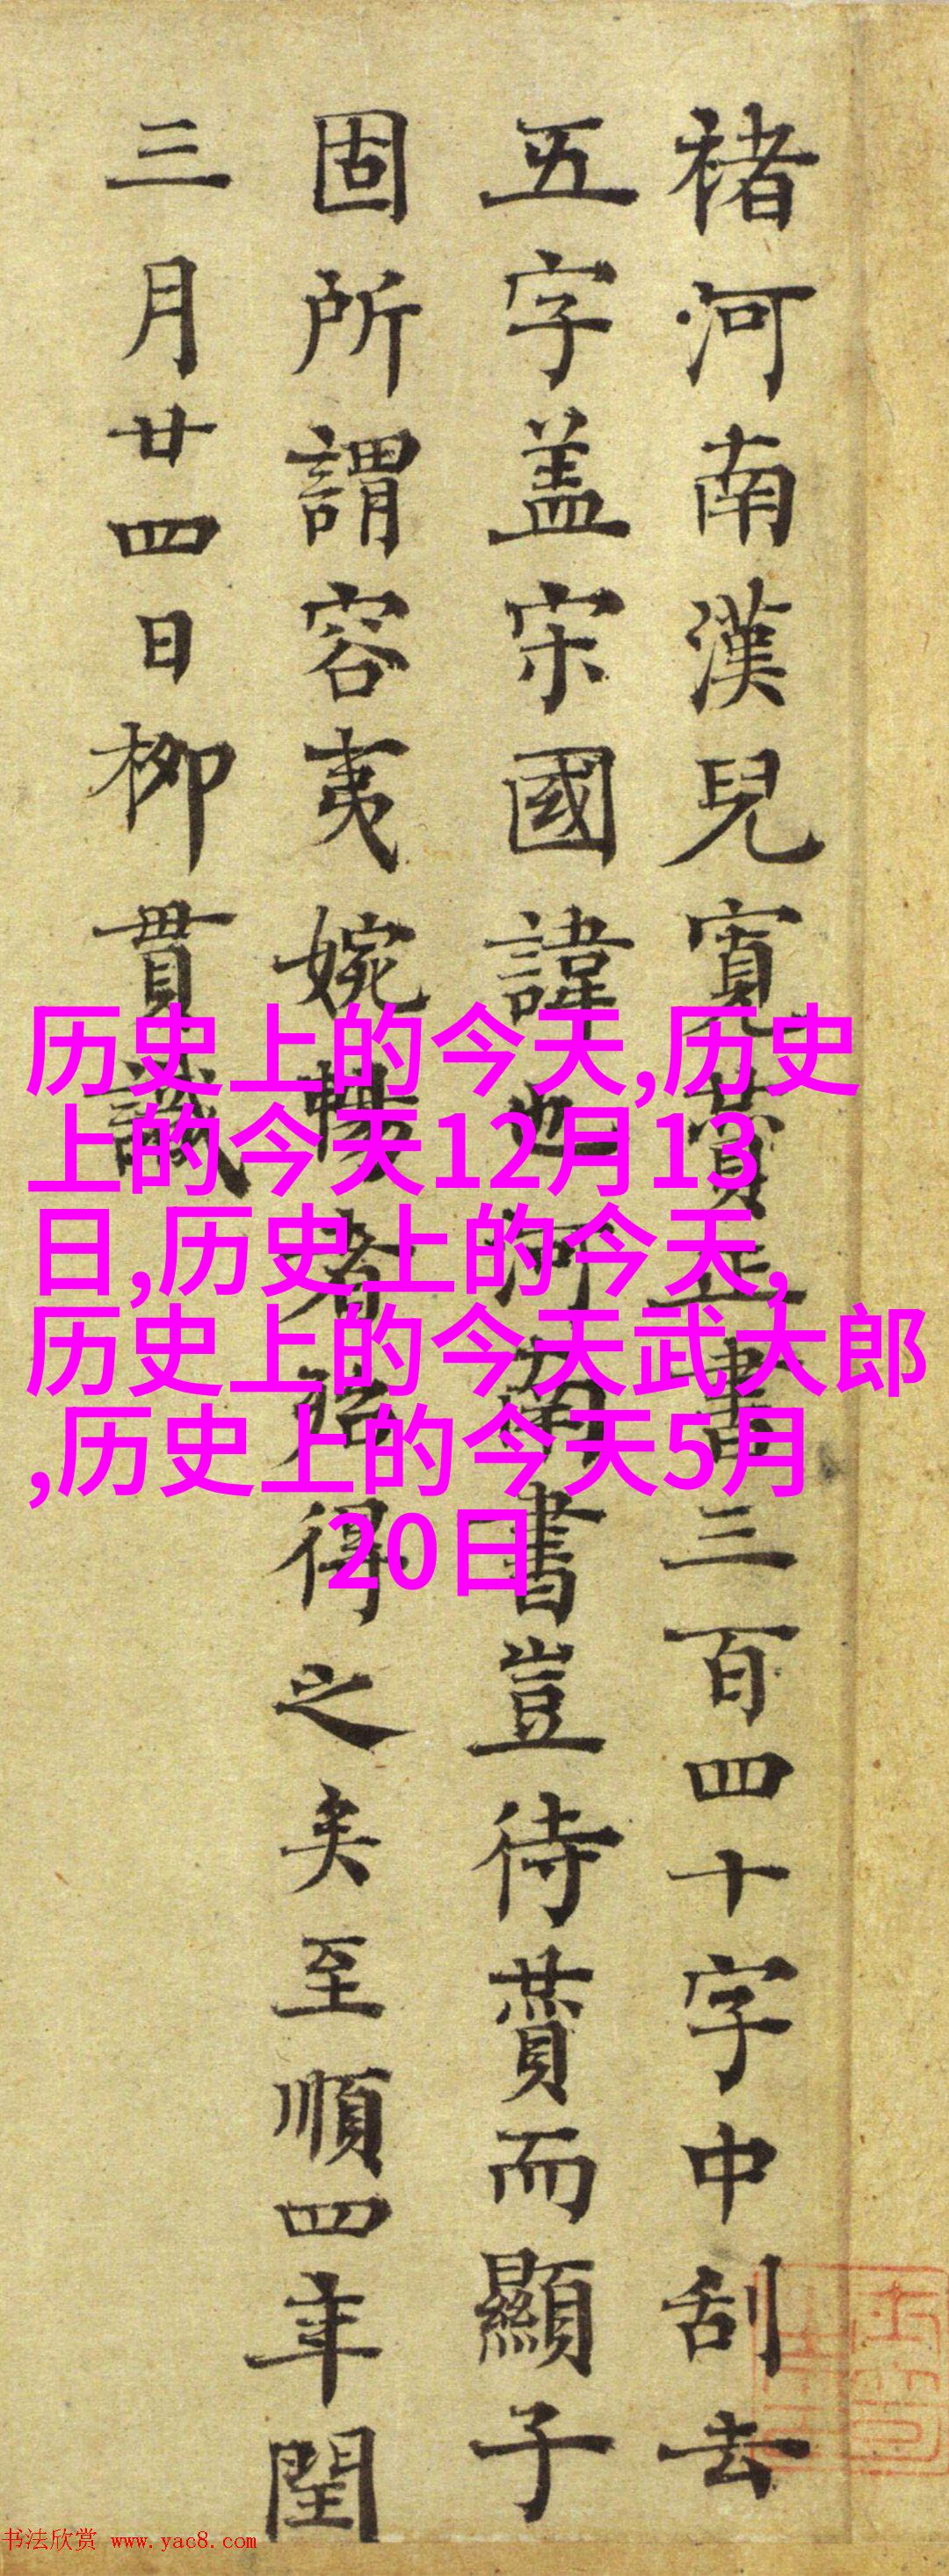 褚河南漢兒寬賛正書三百四十字中刮去
五字盖宋國諱也河南書豈待賛而顯子
固所謂容夷婉暢者殆得之矣至順四年閏
三月廿四日柳貫識
历史上的今天,历史
上的今天12月13
日,历史上的今天,
历史上的今天武大郎
,历史上的今天5月
20日
书法欣赏 www.yac8.com